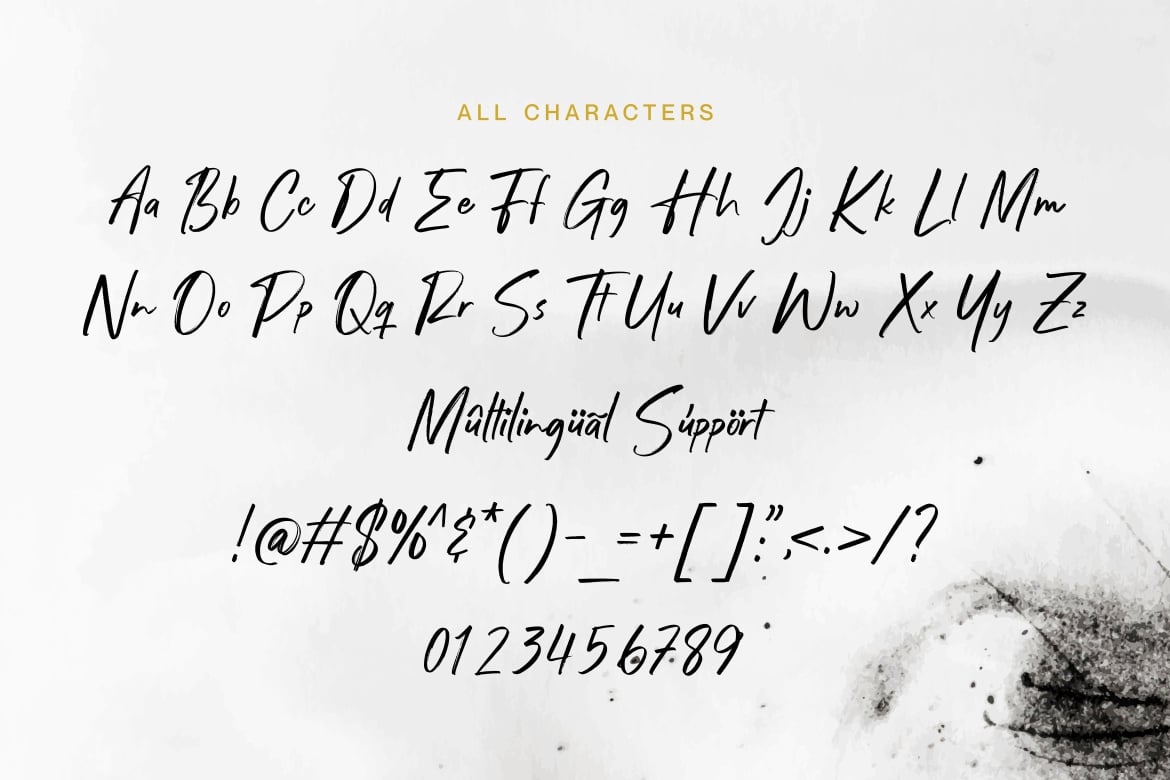 ALL CHARACTERS
Aa Bb Cc Dd Ee Ff Gg Hh Jj Kk Ll Mm
Nn Oo Pp Qq Rr Ss Tt Uu Vv Ww Xx Yy Zz
Mûltilingüãl Súppört
!@#$%^&*()-_=+[]:”,<.>/?
0123456789